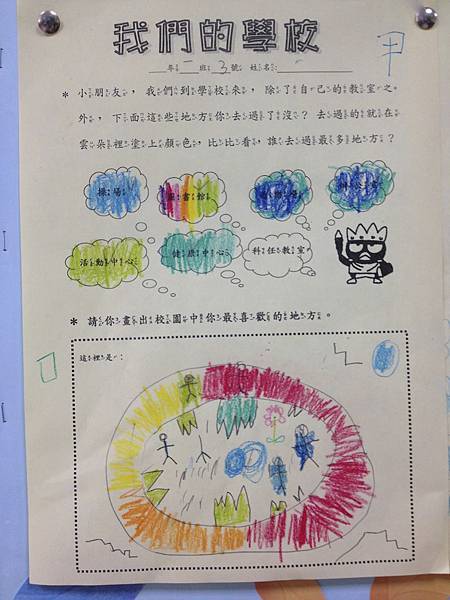 我們的學校
甲
年 二 班 3 號 姓名:
* 小朋友，我們到學校來，除了自己的教室之
外，下面這些地方你去過了沒？去過的就在
雲朵裡塗上顏色，比比看，誰去過最多地方？
操場 圖書館
活動中心 健康中心 科任教室
* 請你畫出校園中你最喜歡的地方。
這裡是：